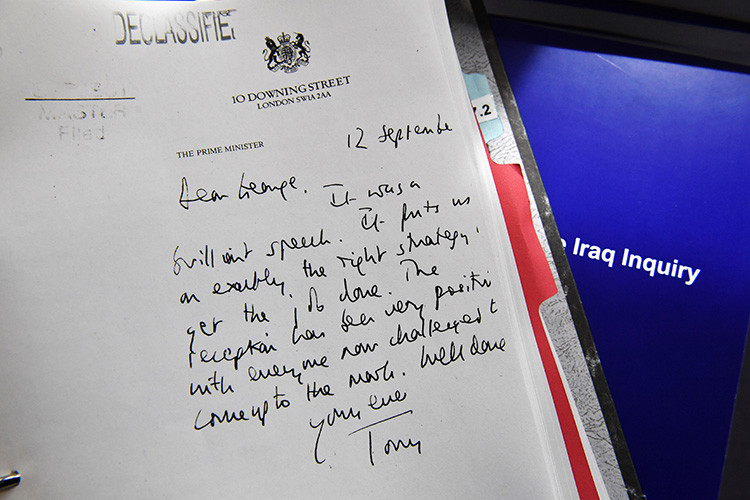 DECLASSIFIED
10 DOWNING STREET
LONDON SW1A 2AA
MINISTER
Filed
THE PRIME MINISTER
12 September
Dear George,
It was a
brilliant speech. It puts us
on exactly the right strategy to
get the job done. The
reception has been very positive
with everyone now challenged to
come up to the mark. Well done
Yours ever
Tony
7.2
e Iraq Inquiry